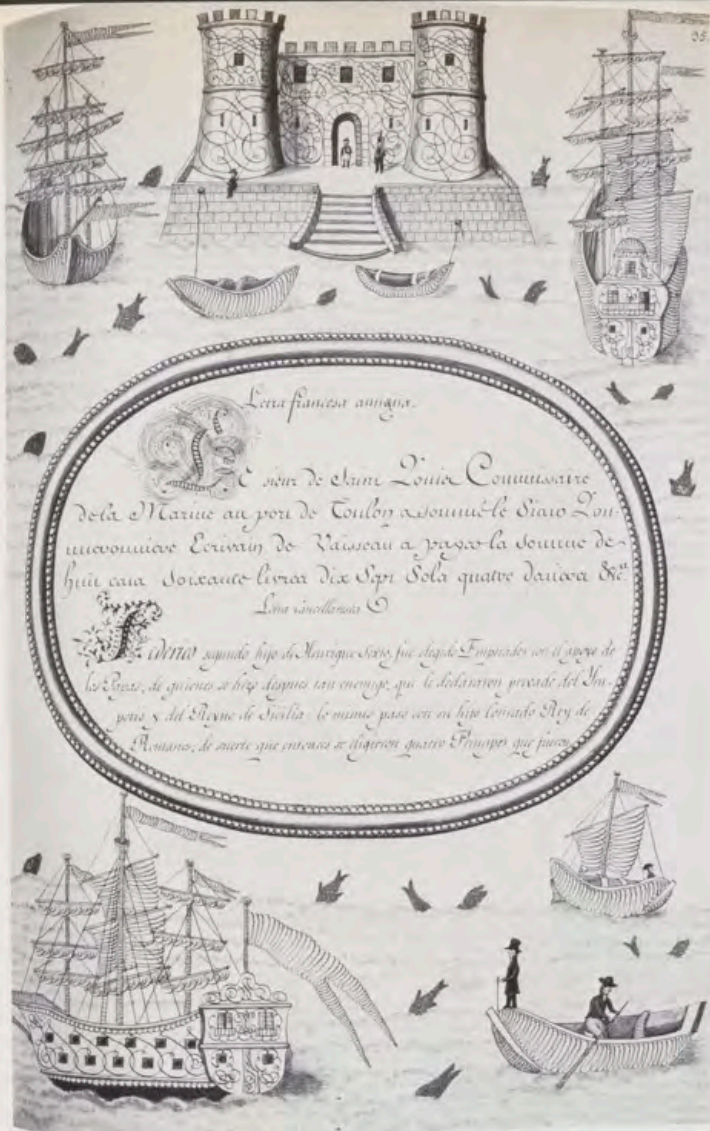 35.
Letra francesa antigua.
Le sieur de Saint Louis Commissaire
de la Marine au port de Toulon a sommé le Sieur
Ecrivain de Vaisseau a payer la somme de
huit cens soixante livres dix Sept Sols quatre deniers &c.ª
Letra cancellaresca
Federico segundo hijo de Henrique Sexto, fue elegido Emperador con el apoyo de
los Papas, de quienes se hizo despues tan enemigo, que le declararon privado del Ym-
perio y del Reyno de Sicilia: lo mismo paso con su hijo Conrado Rey de
Romanos, de suerte que entonces se eligieron quatro Principes que fueron